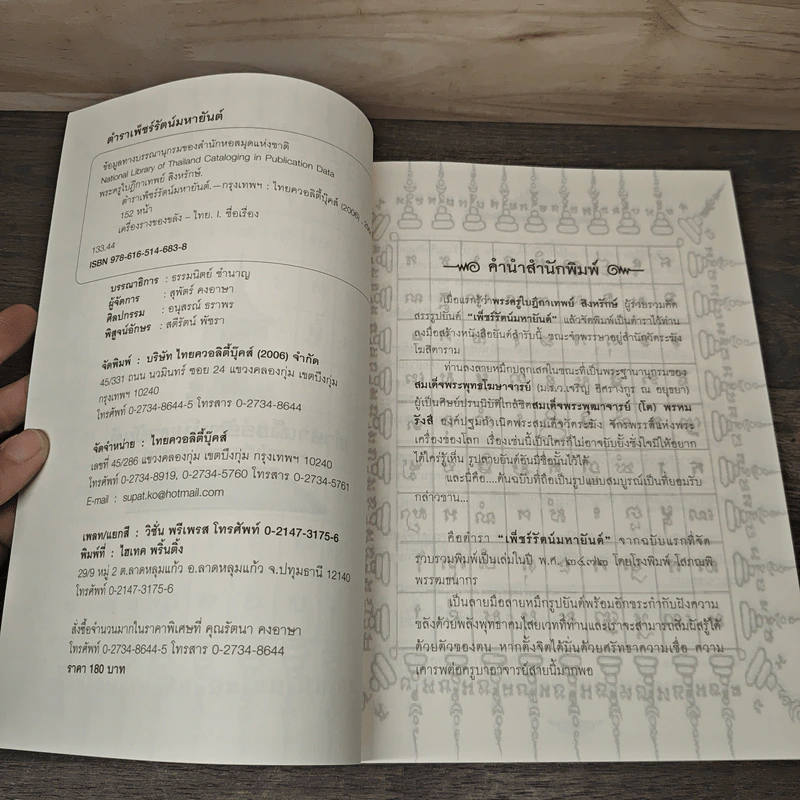 ตำราเพ็ชร์รัตน์มหายันต์
ข้อมูลทางบรรณานุกรมของสำนักหอสมุดแห่งชาติ
National Library of Thailand Cataloging in Publication Data
พระครูใบฎีกาเทพย์ สิงหรักษ์.
ตำราเพ็ชร์รัตน์มหายันต์.—กรุงเทพฯ : ไทยควอลิตี้บุ๊คส์ (2006)
152 หน้า
เครื่องรางของขลัง – ไทย. I. ชื่อเรื่อง
133.44
ISBN 978-616-514-683-8
บรรณาธิการ : ธรรมนิตย์ ชำนาญ
ผู้จัดการ : สุพัตร์ คงอาษา
ศิลปกรรม : อนุสรณ์ ธราพร
พิสูจน์อักษร : สตีรัตน์ พัชรา
จัดพิมพ์ : บริษัท ไทยควอลิตี้บุ๊คส์ (2006) จำกัด
45/331 ถนน นวมินทร์ ซอย 24 แขวงคลองกุ่ม เขตบึงกุ่ม
กรุงเทพฯ 10240
โทรศัพท์ 0-2734-8644-5 โทรสาร 0-2734-8644
จัดจำหน่าย : ไทยควอลิตี้บุ๊คส์
เลขที่ 45/286 แขวงคลองกุ่ม เขตบึงกุ่ม กรุงเทพฯ 10240
โทรศัพท์ 0-2734-8919, 0-2734-5760 โทรสาร 0-2734-5761
E-mail : supat.ko@hotmail.com
เพลท/แยกสี : วิชั่น พรีเพรส โทรศัพท์ 0-2147-3175-6
พิมพ์ที่ : ไฮเทค พริ้นติ้ง
29/9 หมู่ 2 ต.ลาดหลุมแก้ว อ.ลาดหลุมแก้ว จ.ปทุมธานี 12140
โทรศัพท์ 0-2147-3175-6
สั่งซื้อจำนวนมากในราคาพิเศษที่ คุณรัตนา คงอาษา
โทรศัพท์ 0-2734-8644-5 โทรสาร 0-2734-8644
ราคา 180 บาท
คำนำสำนักพิมพ์
เมื่อแรกรู้ว่าพระครูใบฎีกาเทพย์ สิงหรักษ์ ผู้รวบรวมคัด
สรรรูปยันต์ "เพ็ชร์รัตน์มหายันต์" แล้วจัดพิมพ์เป็นตำราไว้ท่าน
ลงมือสร้างหนังสือยันต์สำรับนี้ ขณะจำพรรษาอยู่สำนักวัดระฆัง
โฆสิตาราม
ท่านลงลายหมึกปลุกเสกในขณะที่เป็นพระฐานานุกรมของ
สมเด็จพระพุทธโฆษาจารย์ (ม.ร.ว.เจริญ อิศรางกูร ณ อยุธยา)
ผู้เป็นศิษย์ปรนนิบัติใกล้ชิดสมเด็จพระพุฒาจารย์ (โต) พรหม
รังสี องค์ปฐมกำเนิดพระสมเด็จวัดระฆัง จักรพรรดิ์แห่งพระ
เครื่องของโลก เรื่องเช่นนี้เป็นใครก็ไม่อาจยับยั้งชั่งใจมิให้อยาก
ได้ใคร่รู้เห็น รูปลายยันต์อันมีชื่อนั้นไว้ได้
และนี่คือ....ต้นฉบับที่ถือเป็นรูปแบบสมบูรณ์เป็นที่ยอมรับ
กล่าวขาน...
คือตำรา "เพ็ชร์รัตน์มหายันต์" จากฉบับแรกที่จัด
รวบรวมพิมพ์เป็นเล่มในปี พ.ศ. ๒๔๗๒ โดยโรงพิมพ์ โสภณพิ
พรรฒธนากร
เป็นลายมือลายหมึกรูปยันต์พร้อมอักขระกำกับฝังความ
ขลังด้วยพลังพุทธาคมไสยเวทที่ท่านและเราจะสามารถสัมผัสรู้ได้
ด้วยตัวของตน หากตั้งจิตได้มั่นด้วยศรัทธาความเชื่อ ความ
เคารพต่อครูบาอาจารย์สายนี้มากพอ